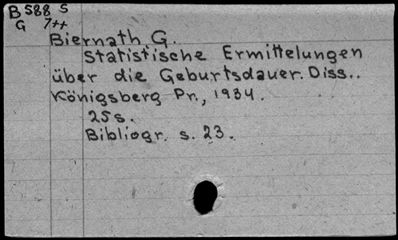 B 588 S
G 7++
Biernath G.
Statistische Ermittelungen
über die Geburtsdauer. Diss..
Königsberg Pr., 1934.
25s.
Bibliogr. s. 23.